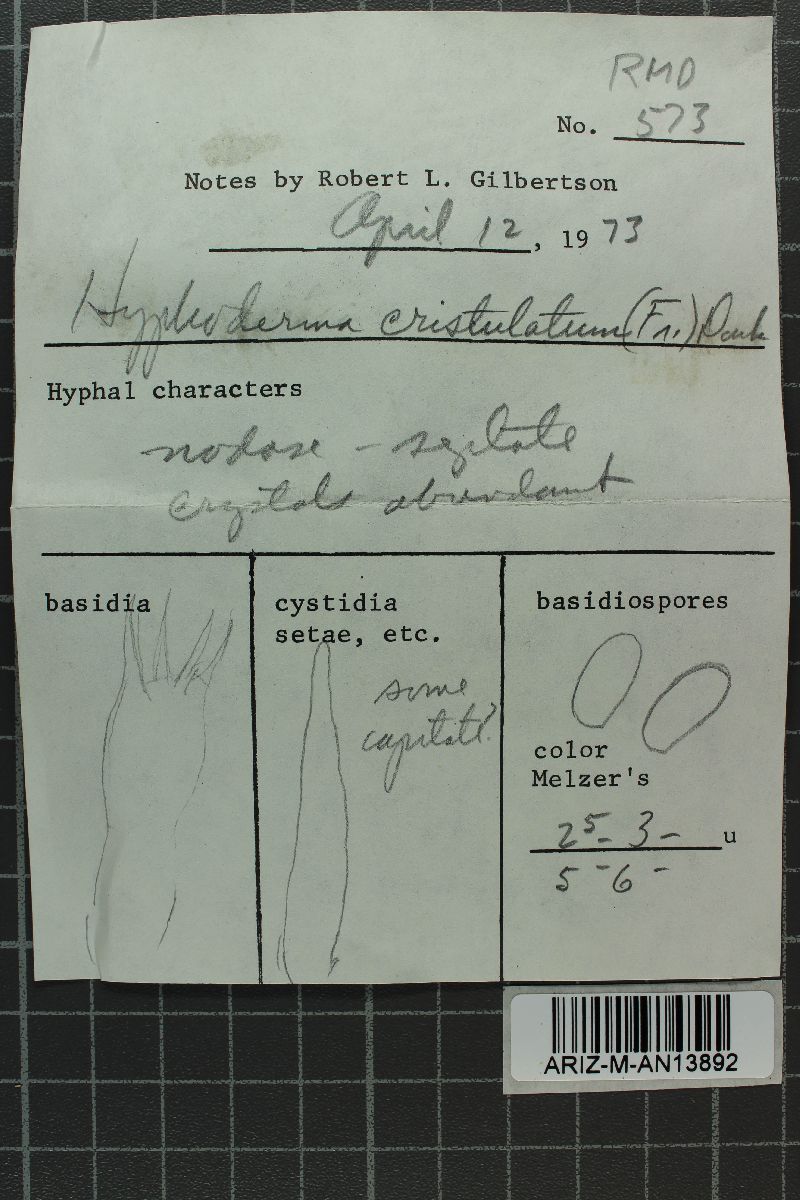 RMD
No. 573
Notes by Robert L. Gilbertson
April 12, 1973
Hyphoderma cristulatum (Fr.) Donk
Hyphal characters
nodose - septate
crystals abundant
basidia
cystidia
setae, etc.
some
capitate?
basidiospores
color
Melzer's
2 5- 3- u
5 - 6 -
ARIZ-M-AN13892